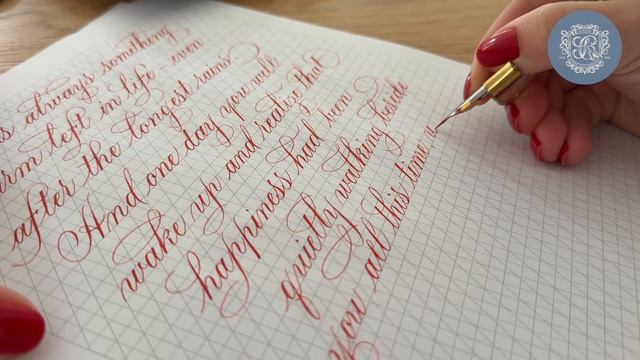 s always something
arm left in life even
after the longest rains
And one day you will
wake up and realize that
happiness had been
quietly walking beside
you all this time a
SR